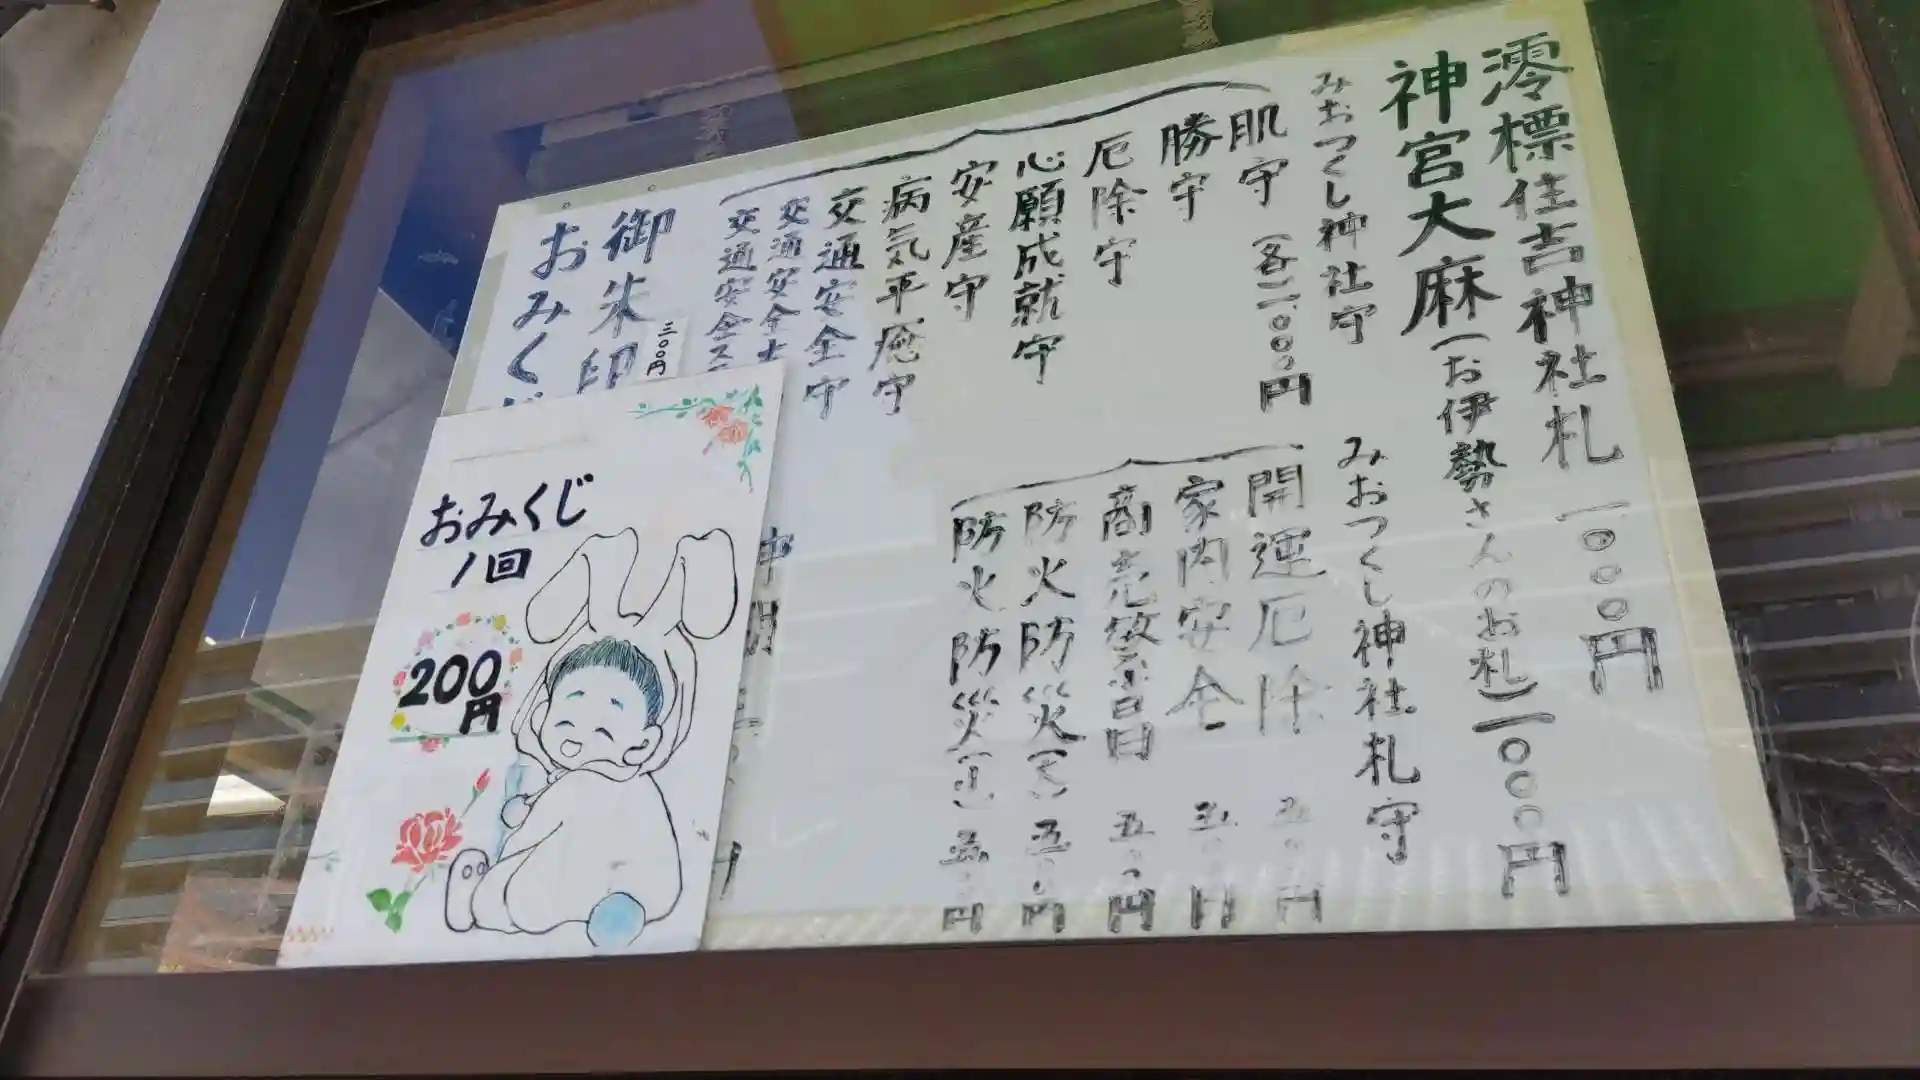 澪標住吉神社札 一〇〇〇円
神宮大麻(お伊勢さんのお札)一〇〇〇円
みおつくし神社守
肌守
勝守
厄除守
心願成就守
安産守
病気平癒守
交通安全守
交通安全
交通安全ス
みおつくし神社札守
開運厄除 五〇〇円
家内安全 五〇〇円
商売繁昌 五〇〇円
防火防災(大) 五〇〇円
防火防災 円
御朱印
三〇〇円
おみく
おみくじ
1回
200
円